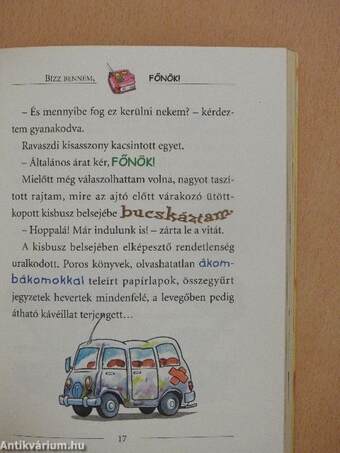 BÍZZ BENNEM, FŐNÖK!
– És mennyibe fog ez kerülni nekem? – kérdez-
tem gyanakodva.
Ravaszdi kisasszony kacsintott egyet.
– Általános árat kér, FŐNÖK!
Mielőtt még válaszolhattam volna, nagyot taszí-
tott rajtam, mire az ajtó előtt várakozó ütött-
kopott kisbusz belsejébe bucskáztam.
– Hoppalá! Már indulunk is! – zárta le a vitát.
A kisbusz belsejében elképesztő rendetlenség
uralkodott. Poros könyvek, olvashatatlan ákom-
bákomokkal teleírt papírlapok, összegyűrt
jegyzetek hevertek mindenfelé, a levegőben pedig
átható kávéillat terjengett...
17
Antikvárium.hu